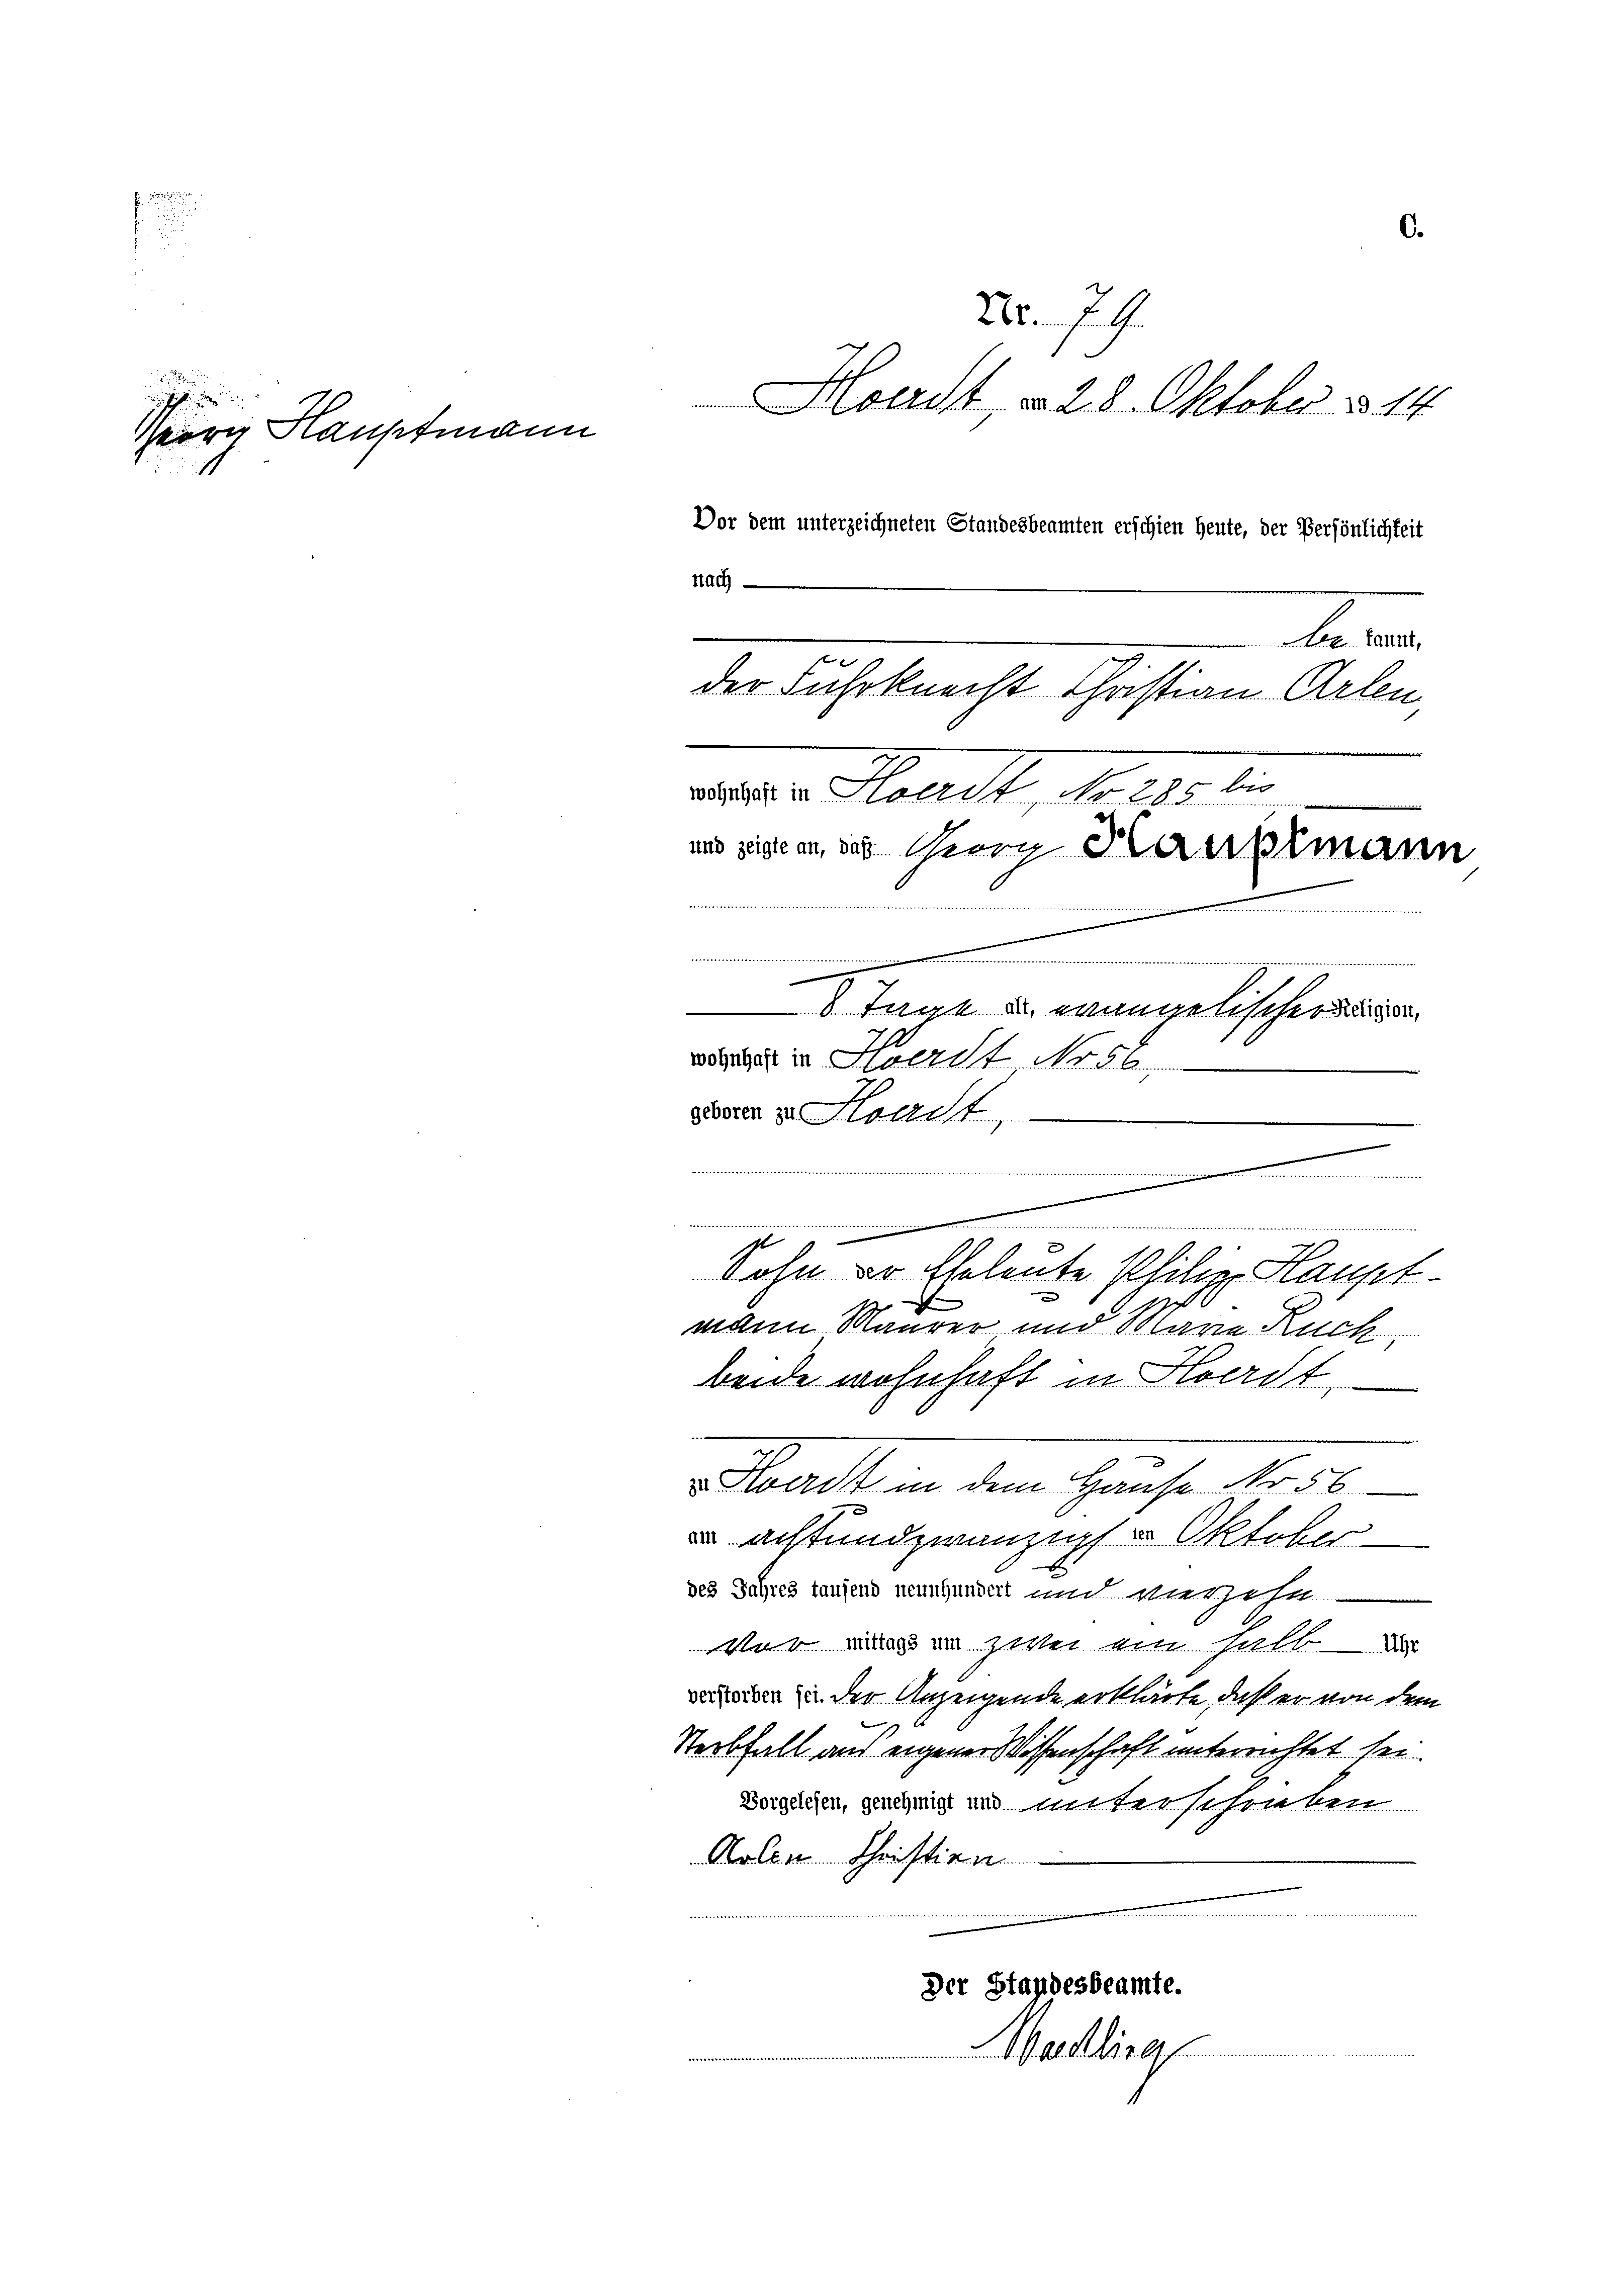 C.
Nr. 79
Georg Hauptmann
Hoerdt, am 28. Oktober 1914
Vor dem unterzeichneten Standesbeamten erschien heute, der Persönlichkeit
nach
be kannt,
der Fuhrknecht Christian Arlen,
wohnhaft in Hoerdt, Nr 285 bis
und zeigte an, daß Georg Hauptmann
8 Tage alt, evangelischer Religion,
wohnhaft in Hoerdt Nr 56,
geboren zu Hoerdt,
Sohn der Eheleute Philipp Haupt-
mann Maurer und Maria Ruch,
beide wohnhaft in Hoerdt,
zu Hoerdt in dem Hause Nr 56
am achtundzwanzigs ten Oktober
des Jahres tausend neunhundert und vierzehn
Vor mittags um zwei ein halb Uhr
verstorben sei. Der Anzeigende erklärte, daß er von dem
Sterbfall aus eigener Wissenschaft unterrichtet sei.
Vorgelesen, genehmigt und unterschrieben
Arlen Christian
Der Standesbeamte.